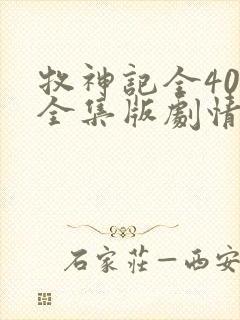 牧神記全40
全集版劇情
石家莊－西安